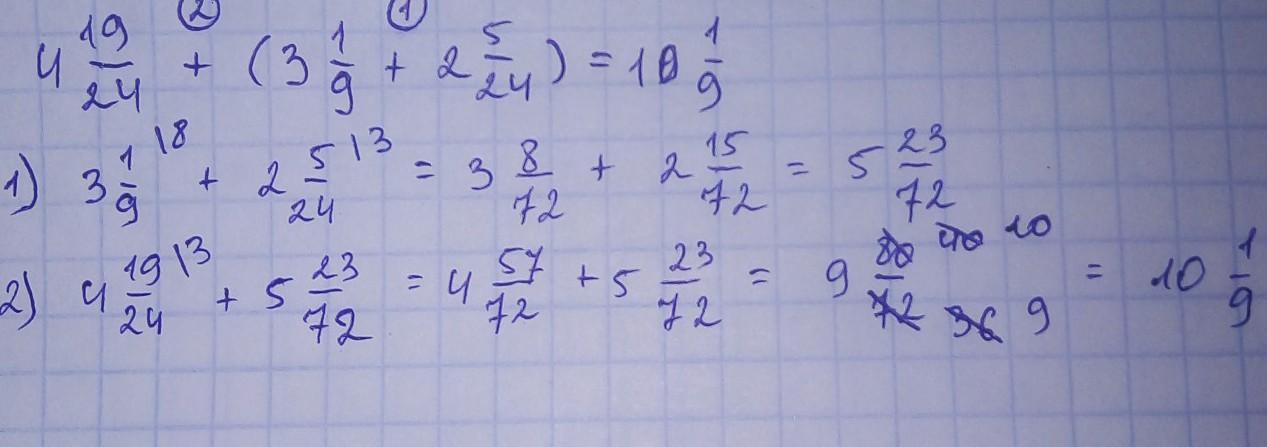 4 19/24 + (3 1/9 + 2 5/24) = 10 1/9
② ①
1) 3 1/9 \8 + 2 5/24 \3 = 3 8/72 + 2 15/72 = 5 23/72
2) 4 19/24 \3 + 5 23/72 = 4 57/72 + 5 23/72 = 9 80/72 40/36 10/9 = 10 1/9